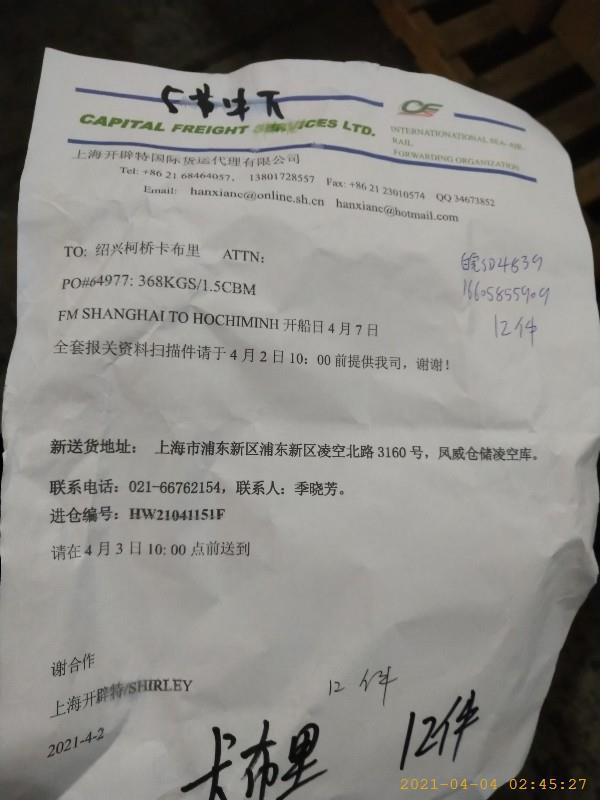 CAPITAL FREIGHT SERVICES LTD.
INTERNATIONAL SEA-AIR-
RAIL
FORWARDING ORGANIZATION
上海开辟特国际货运代理有限公司
Tel: +86 21 68464057, 13801728557 Fax: +86 21 23010574 QQ 34673852
Email: hanxianc@online.sh.cn hanxianc@hotmail.com
TO: 绍兴柯桥卡布里 ATTN:
皖SD4839
PO#64977: 368KGS/1.5CBM
16605855909
FM SHANGHAI TO HOCHIMINH 开船日 4 月 7 日
12件
全套报关资料扫描件请于 4 月 2 日 10：00 前提供我司，谢谢！
新送货地址： 上海市浦东新区浦东新区凌空北路 3160 号，凤威仓储凌空库。
联系电话：021-66762154，联系人：季晓芳。
进仓编号：HW21041151F
请在 4 月 3 日 10：00 点前送到
谢合作
上海开辟特/SHIRLEY
12 件
2021-4-2
卡布里 12件
2021-04-04 02:45:27